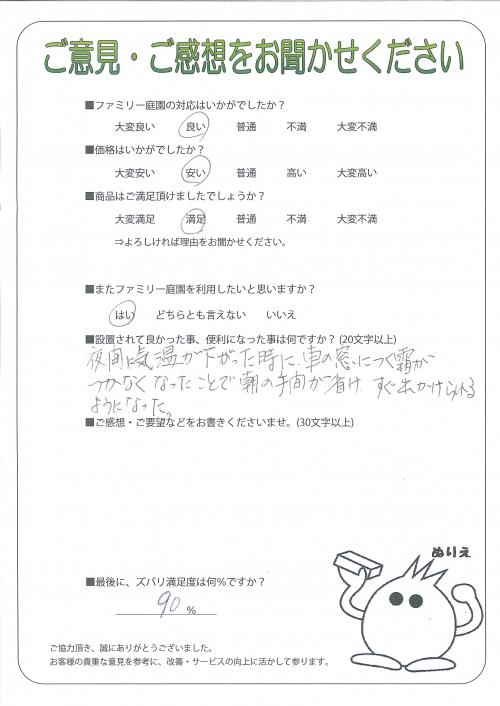 ご意見・ご感想をお聞かせください
■ファミリー庭園の対応はいかがでしたか？
大変良い 良い 普通 不満 大変不満
■価格はいかがでしたか？
大変安い 安い 普通 高い 大変高い
■商品はご満足頂けましたでしょうか？
大変満足 満足 普通 不満 大変不満
⇒よろしければ理由をお聞かせください。
■またファミリー庭園を利用したいと思いますか？
はい どちらとも言えない いいえ
■設置されて良かった事、便利になった事は何ですか？(20文字以上)
夜間に気温が下がった時に、車の窓につく霜が
つかなくなったことで朝の手間が省け、すぐ出かけられる
ようになった。
■ご感想・ご要望などをお書きくださいませ。(30文字以上)
ぬりえ
■最後に、ズバリ満足度は何％ですか？
90 %
ご協力頂き、誠にありがとうございました。
お客様の貴重な意見を参考に、改善・サービスの向上に活かして参ります。